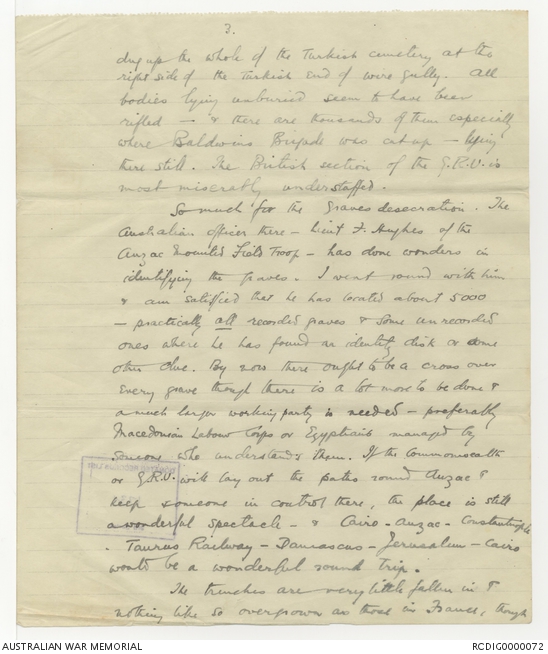 3.
dug up the whole of the Turkish cemetery at the
right side of the Turkish end of wire gully. All
bodies lying unburied seem to have been
rifled – & there are thousands of them especially
where Baldwins Brigade was cut up – lying
there still. The British section of the G.R.U. is
most miserably understaffed.
So much for the graves desecration. The
Australian officer there – Lieut F. Hughes of the
Anzac Mounted Field Troop – has done wonders in
identifying the graves. I went round with him
& am satisfied that he has located about 5000
– practically all recorded graves & some unrecorded
ones where he has found an identity disk or some
other clue. By now there ought to be a cross over
every grave though there is a lot more to be done &
a much larger working party is needed – preferably
Macedonian Labour Corps or Egyptians managed by
someone who understands them. If the Commonwealth
or G.R.U. will lay out the paths round Anzac &
keep someone in control there, the place is still
a wonderful spectacle – & Cairo – Anzac – Constantinople
– Taurus Railway – Damascus – Jerusalem – Cairo
would be a wonderful round trip.
The trenches are very little fallen in &
nothing like so overgrown as those in France, though
AUSTRALIAN WAR MEMORIAL
RCDIG0000072